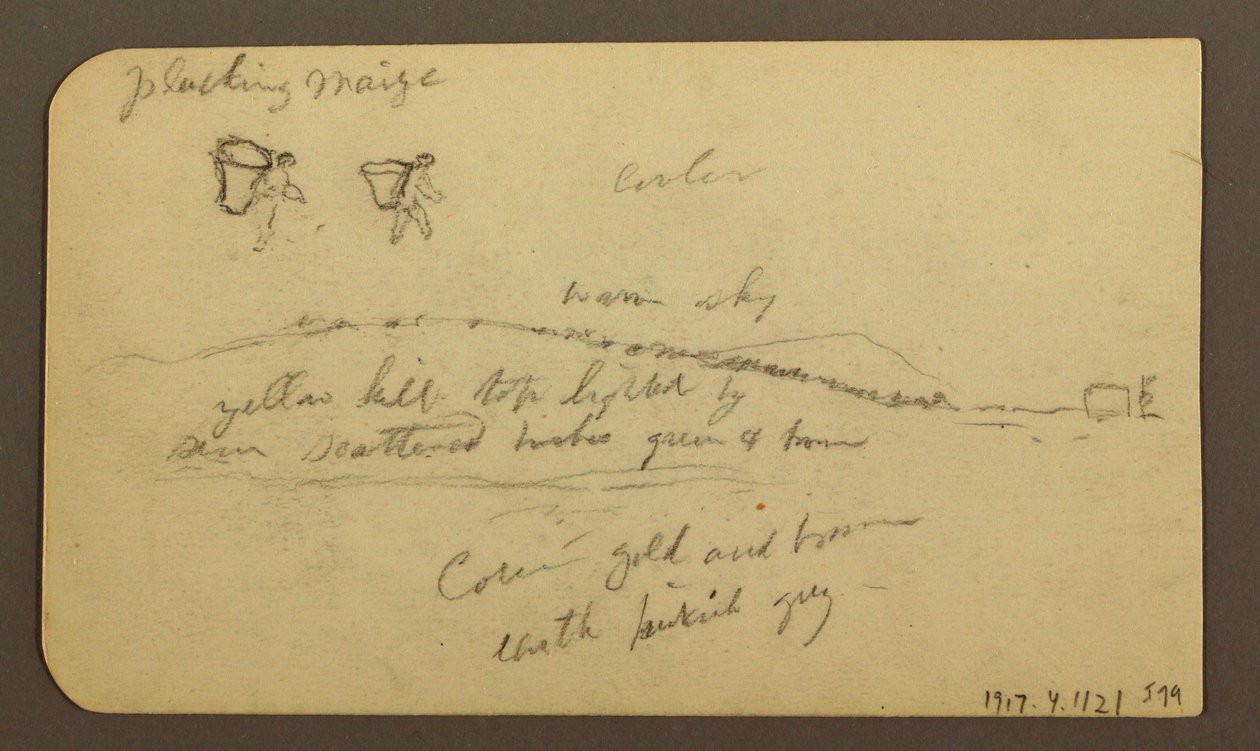 plucking maize
cooler
warm sky
yellow hill top lighted by
sun scattered bushes green & brown
Corn gold and brown
earth pinkish grey
1917.4.1121 579